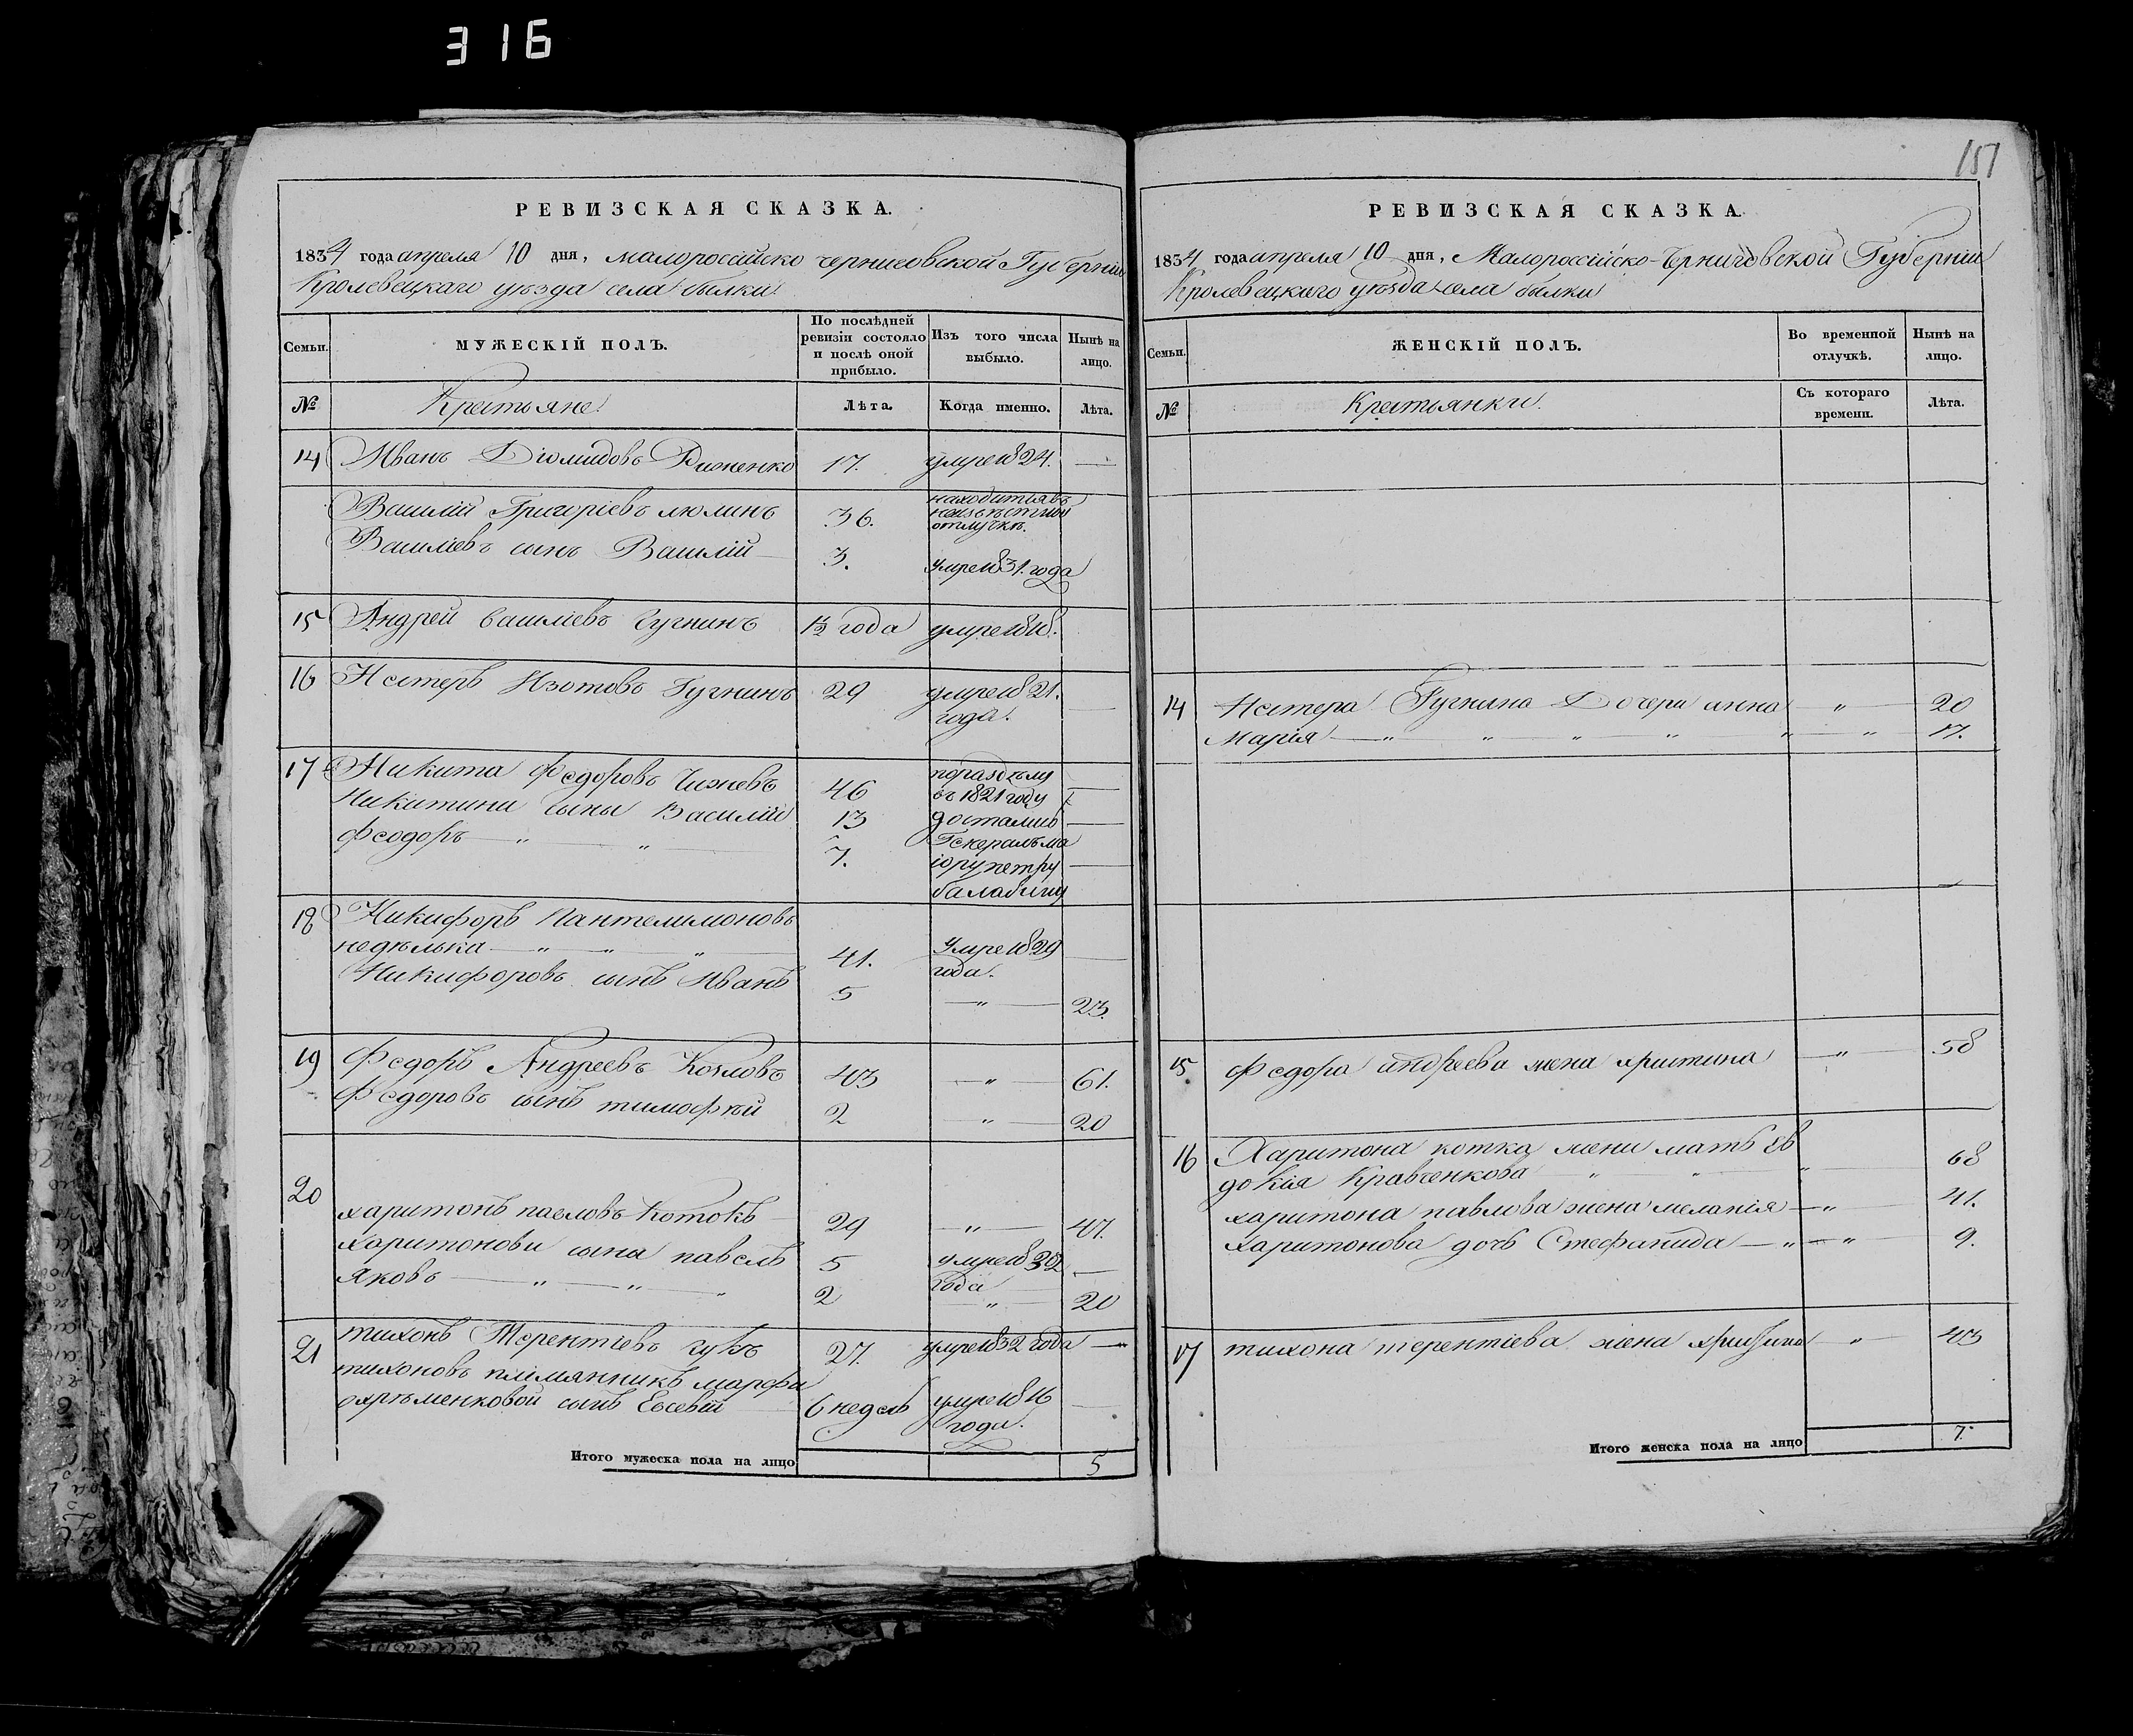 316
151
РЕВИЗСКАЯ СКАЗКА.
1834 года апреля 10 дня, малороссійско черниговской Губерніи
Кролевецкаго уѣзда села былки
Семьи. МУЖЕСКІЙ ПОЛЪ. По послѣдней ревизіи состояло и послѣ оной прибыло. Изъ того числа выбыло. Нынѣ на лицо.
№ Крестьяне Лѣта. Когда именно. Лѣта.
14 Иванъ Діомидовъ 17. умре 1824. —
Василій Григоріевъ люлинъ 36. находится въ неизвѣстной отлучкѣ.
Василіевъ сынъ Василій 3. умре 1831. года
15 Андрей василіевъ Гугнинъ 1½ года умре 1818.
16 Нестеръ Изотовъ Гугнинъ 29 умре 1821. года. —
17 Никита Федоровъ Чижевъ 46 по разделу —
Никитини сыны Василий 13 въ 1821 году достались —
Феодоръ — " — " — 7. Генералъ маіору петру балабину —
18 Никифоръ Пантелимоновъ
недѣлька — " — " — " — 41. Умре 1829 года. —
Никифоровъ сынъ Иванъ 5 — " — 23.
19 Федоръ Андреевъ Козловъ 43 — " — 61.
Федоровъ сынъ тимофѣй 2 — " — 20
20 харитонъ павловъ Котокъ 29 — " — 47.
харитонови сыни павелъ 5 умре 1832 года —
Яковъ — " — " — " 2 — " — 20
21 тихонъ Терентіевъ гукъ 27. умре 1832 года —
тихоновъ племянникъ марфи
охрѣменковой сынъ Евсевій 6 недель умре 1816 года. —
Итого мужеска пола на лицо 5
РЕВИЗСКАЯ СКАЗКА.
1834 года апреля 10 дня, Малороссійско-Черниговской Губерніи
Кролевецкаго уѣзда села былки
Семьи. ЖЕНСКІЙ ПОЛЪ. Во временной отлучкѣ. Нынѣ на лицо.
№ Крестьянки. Съ котораго времени. Лѣта.
14 Нестера Гугнина Дочери анна " 20
Марія — " — " — " — " — " — " — 17.
15. Федора андреева жена христина — " — 58
16 Харитона котка жени мать Ев
докія Кравченкова " " " 68
харитона павлова жена меланія — " — 41.
харитонова дочь Стефанида — " — " — 9.
17 тихона терентіева жена — " — 43
Итого женска пола на лицо 7.